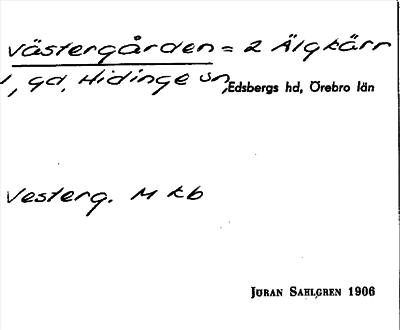 Västergården = 2 Älgkärr
1, gd, Hidinge sn, Edsbergs hd, Örebro län
Vesterg. M kb
Jöran Sahlgren 1906